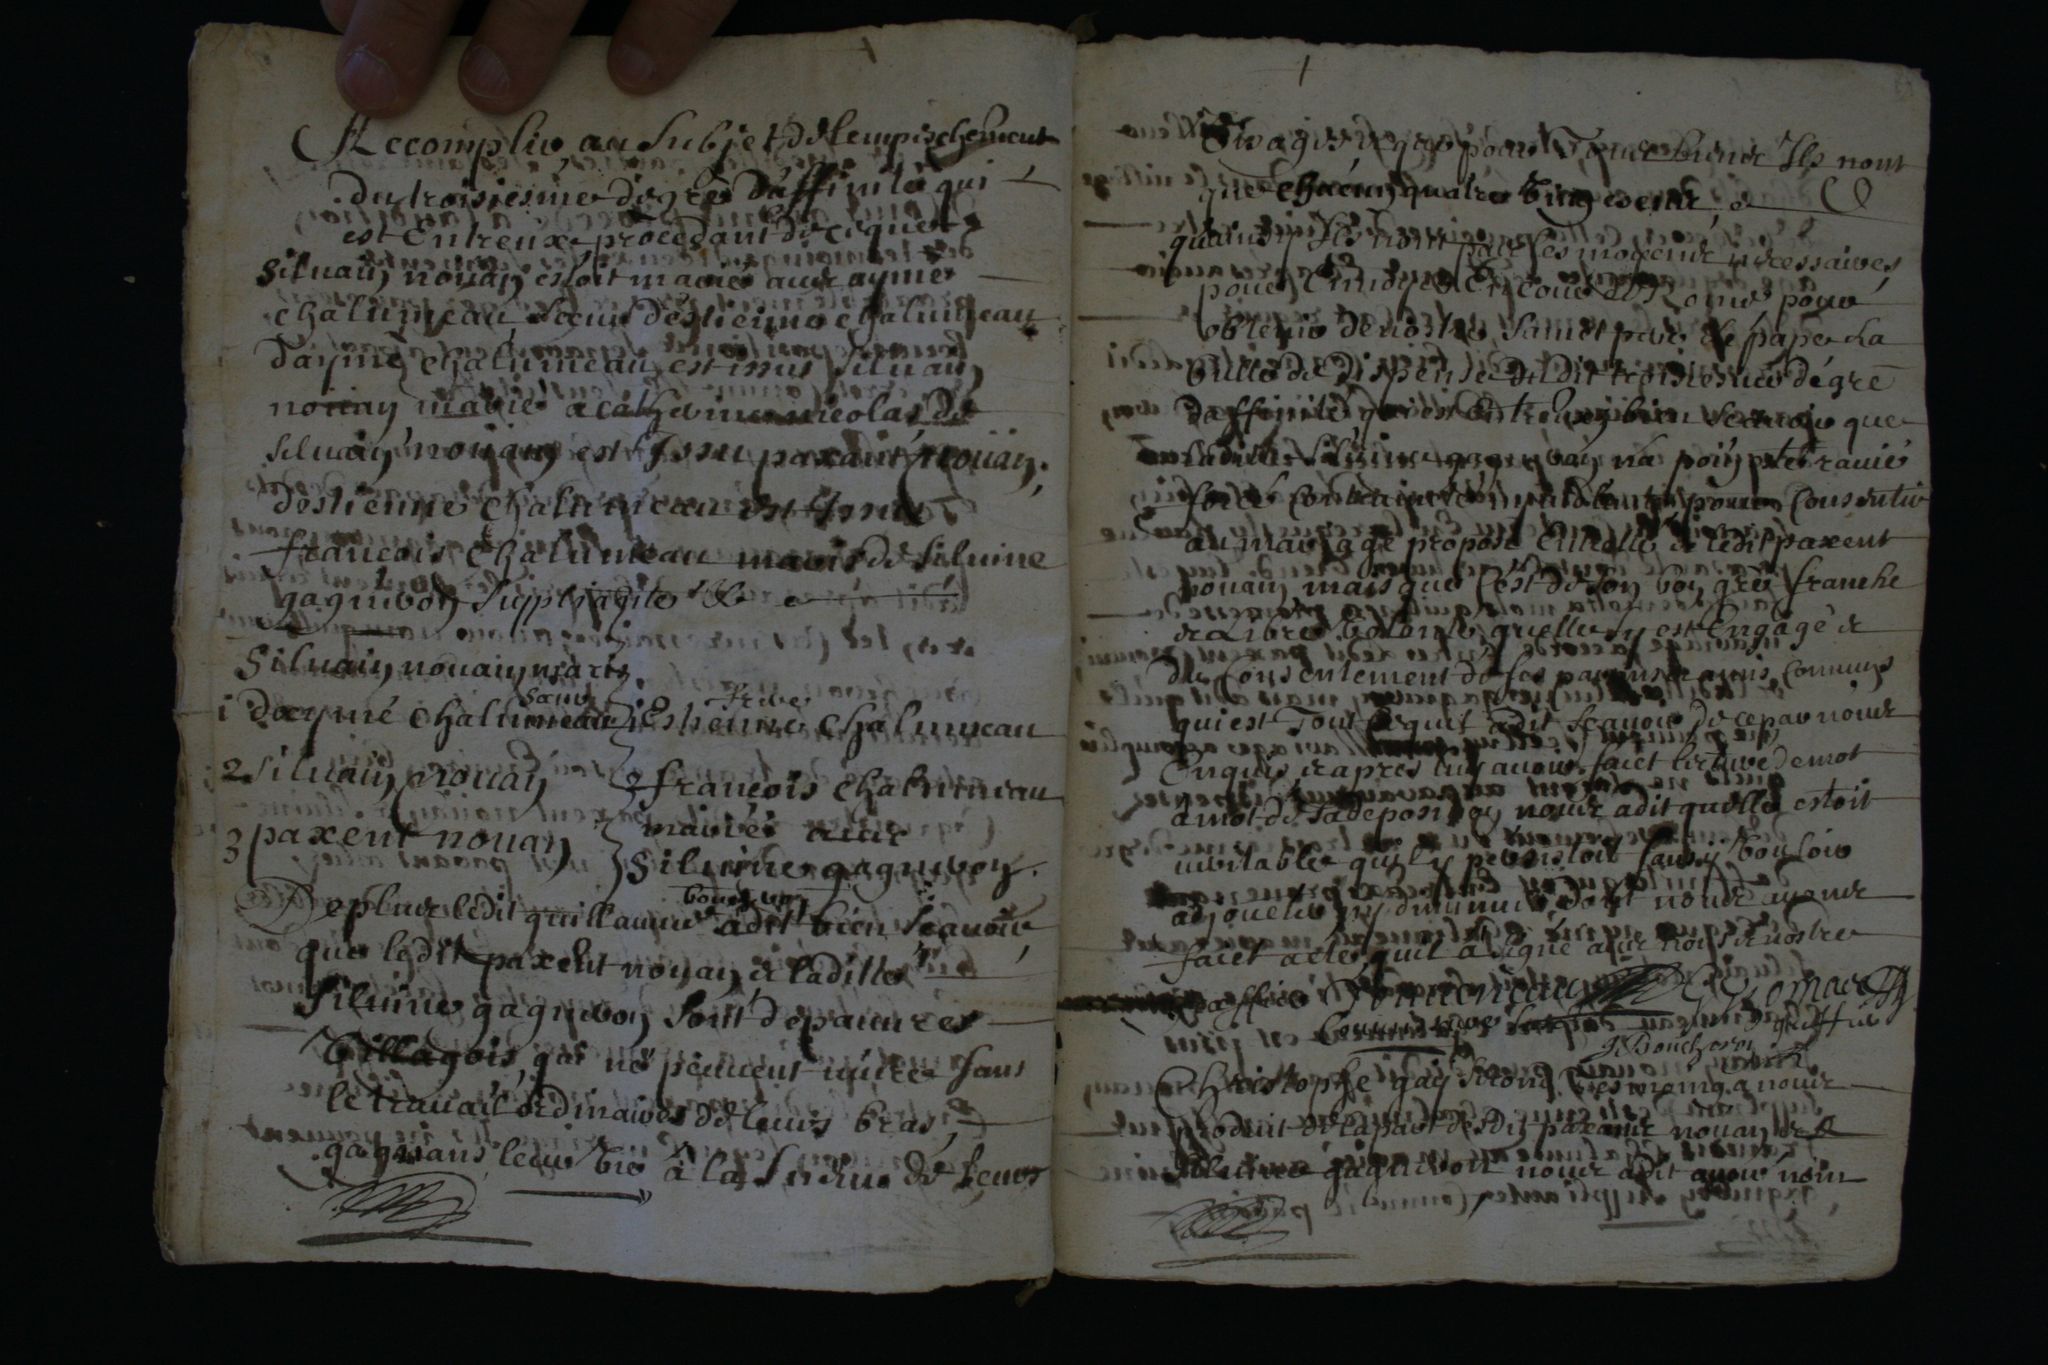 Accomplir au subjet de lempeschement
du troisiesme degré daffinité qui
est Entreux procedant de ce que
Siluain nouan estoit marié auec aymé
chalumeau soeur destienne chalumeau
daymé chalumeau est issus siluain
nouan marié a catherine nicolas de
siluain nouan est Issu paxant nouan
destienne chalumeau est Issus
francois chalumeau maris de siluine
gagnebon suppliante &
Siluain nouain maris
1 daymé chalumeau soeur 1 Estienne chalumeau frere
2 siluain nouan 2 francois chalumeau
3 paxent nouan mariés auec
siluine gagnebon
De plus ledit guillaume a dit bien scauoir
que ledit paxent nouan et laditte
siluine gagnebon sont de pauures
Villagois qui ne peuuent uiure sans
le trauail ordinaire de leurs bras
gagnans leur vie a la sueur de leurs
Visages et que pour tous biens Ils nont
que chacun quatre vingt
quainsi Ils nont pas les moyens necessaires
pour Enuoyer En cour de Rome pour
obtenir de nostre sainct pere le pape La
bulle de dispense dudit troisiesme degré
daffinité qui est Entreux bien scauoir que
ladite siluine gagnebon na point esté rauie
forcé contrainte pour consentir
au mariage proposé Entrelle et ledit paxent
nouain mais que cest de son bon gré franche
et Libre Volonté quelle y est Engagé et
du Consentement de ses parens et amis communs
qui est Tout ce quil a dit scauoir de ce par nous
Enquis et apres luy auoir faict lecture de mot
a mot de sa deposition nous a dit quelle estoit
ueritable quil y persistoit sans y vouloir
adjouster ny diminuer dont nous auons
faict acte quil a signé auec nous et nostre
greffier
greffier
Christophe gay second tesmoing a nous
produit de la part desdits paxant nouan et
siluine gagnebon nous a dit auoir nom